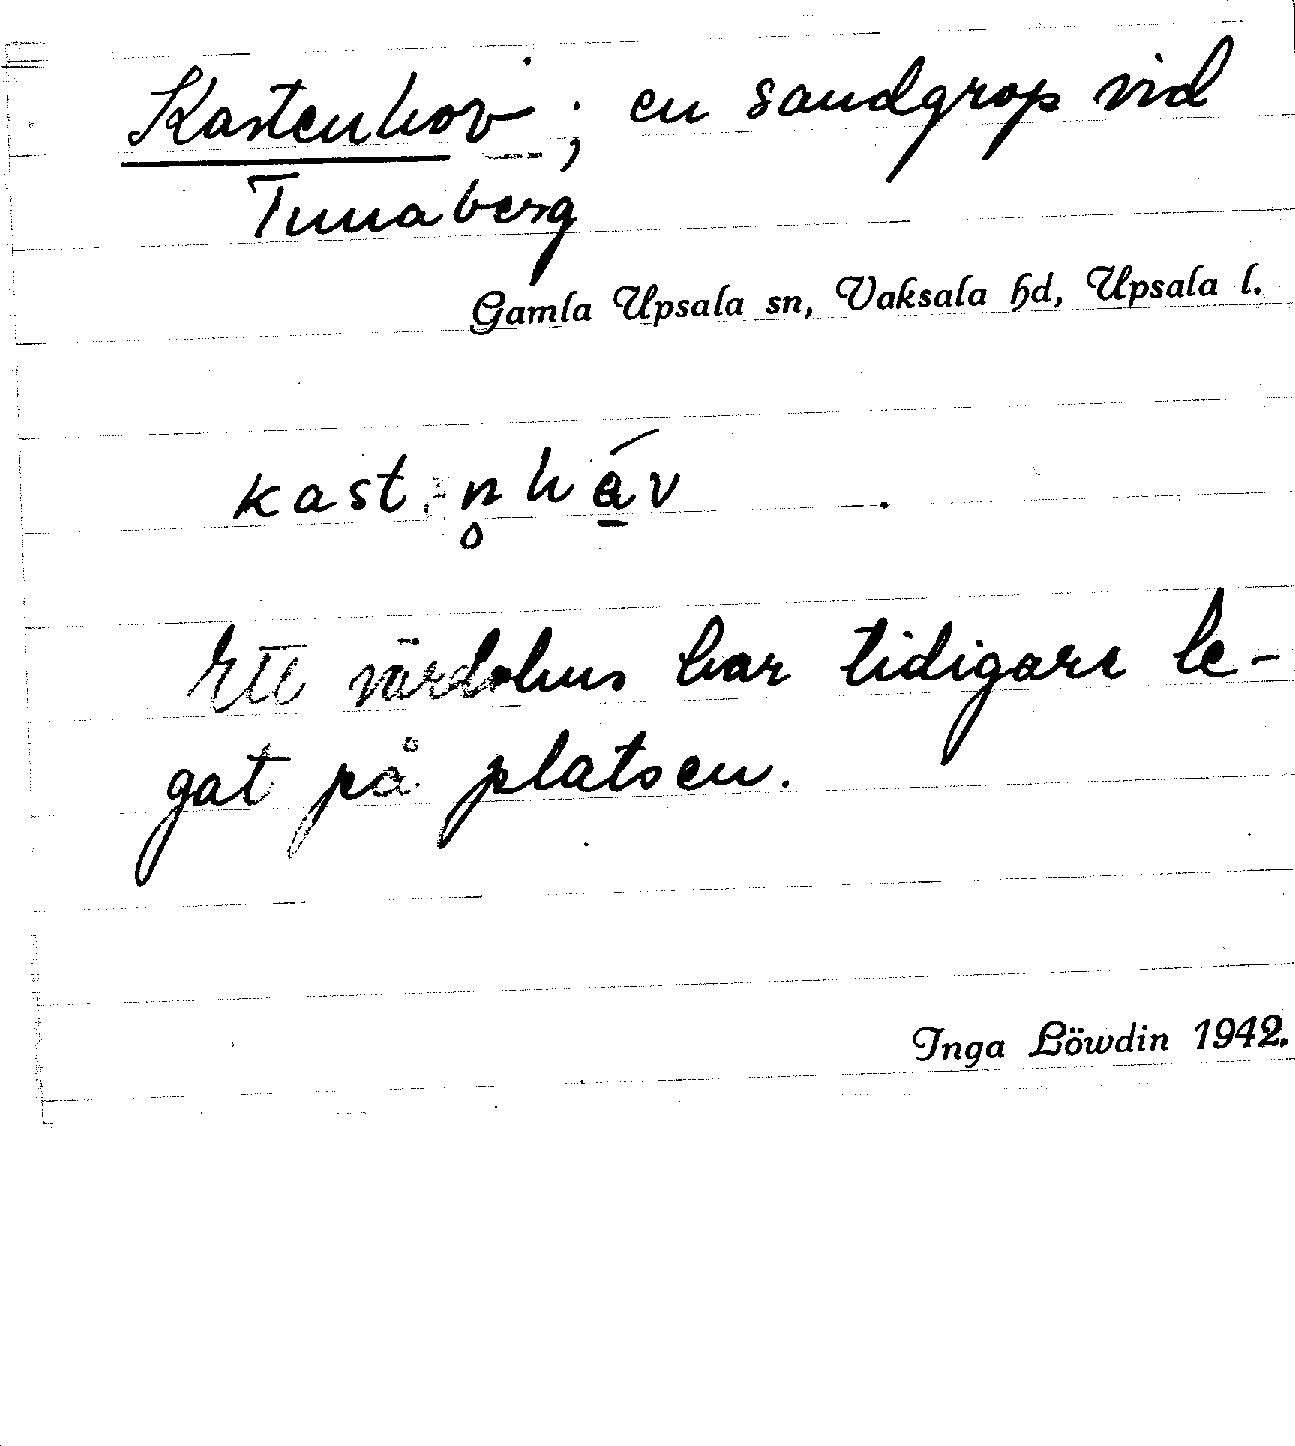 Kastenhov; en sandgrop vid
Tunaberg
Gamla Upsala sn, Vaksala hd, Upsala l.
kastn̥há̱v
Ett värdshus har tidigare le-
gat på platsen.
Inga Löwdin 1942.